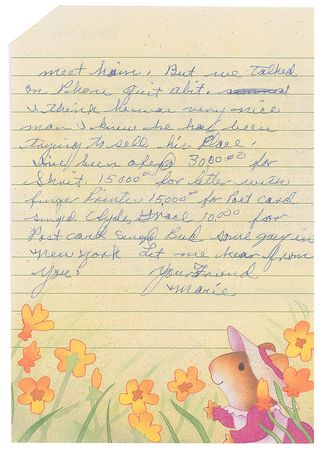 meet him. But we talked
on Phone quit abit.
I think he was very nice
man I knew he had been
trying to sell his Place.
I've been offer 30,000.00 for
Shirt. 15,000.00 for letter with
finger Prints. 15,000.00 for Post card
singed Clyde, Grace 10,000 for
Post card singed Bud some guy in
New York Let me hear from
you. Your Friend
Marie